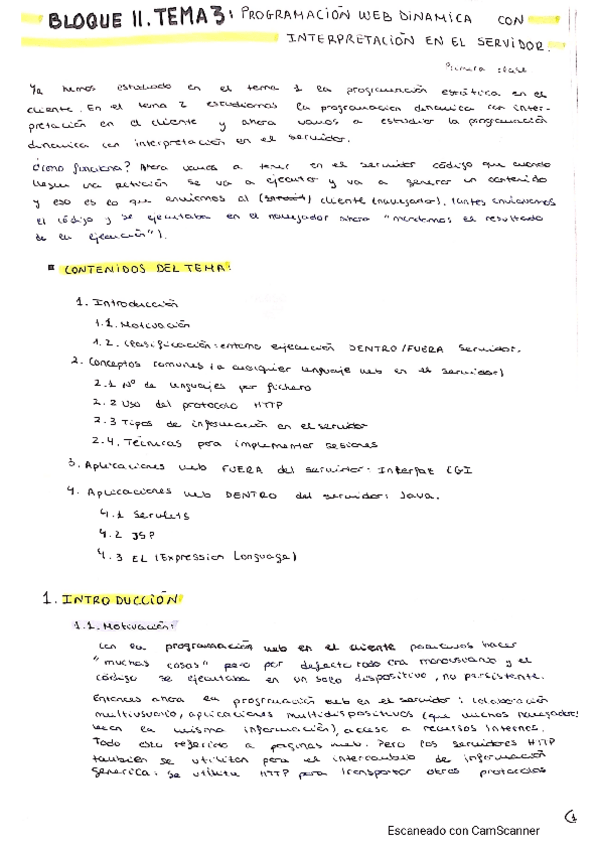 BLOQUE II. TEMA 3: PROGRAMACIÓN WEB DINAMICA CON
INTERPRETACIÓN EN EL SERVIDOR.
Primera clase
Ya hemos estudiado en el tema 1 la programación estática en el
cliente. En el tema 2 estudiamos la programacion dinamica con inter-
pretación en el cliente y ahora vamos a estudiar la programación
dinamica con interpretación en el servidor.
¿Como funciona? Ahora vamos a tener en el servidor código que cuando
llegue una petición se va a ejecutar y va a generar un contenido
y eso es lo que enviamos al cliente (navegador). (antes enviabamos
el código y se ejecutaba en el navegador ahora "mandamos el resultado
de la ejecución").
CONTENIDOS DEL TEMA:
1. Introducción
1.1. Motivación
1.2. Clasificación: entorno ejecución DENTRO/FUERA servidor.
2. Conceptos comunes (a cualquier lenguaje web en el servidor)
2.1 Nº de lenguajes por fichero
2.2 Uso del protocolo HTTP
2.3 Tipos de información en el servidor
2.4. Técnicas para implementar sesiones
3. Aplicaciones web FUERA del servidor: Interfaz CGI
4. Aplicaciones web DENTRO del servidor: Java.
4.1 Servlets
4.2 JSP
4.3 EL (Expression Language)
1. INTRODUCCIÓN
1.1. Motivación:
Con la programación web en el cliente podemos hacer
"muchas cosas" pero por defecto todo era monousuario y el
código se ejecutaba en un solo dispositivo, no persistente.
Entonces ahora la programación web en el servidor: colaboración
multiusuario, aplicaciones multidispositivos (que muchos navegadores
vean la misma información), acceso a recursos internos.
Todo esto referido a paginas web. Pero los servidores HTTP
también se utilizan para el intercambio de información
generica: se utiliza HTTP para transportar otros protocolos
1
Escaneado con CamScanner